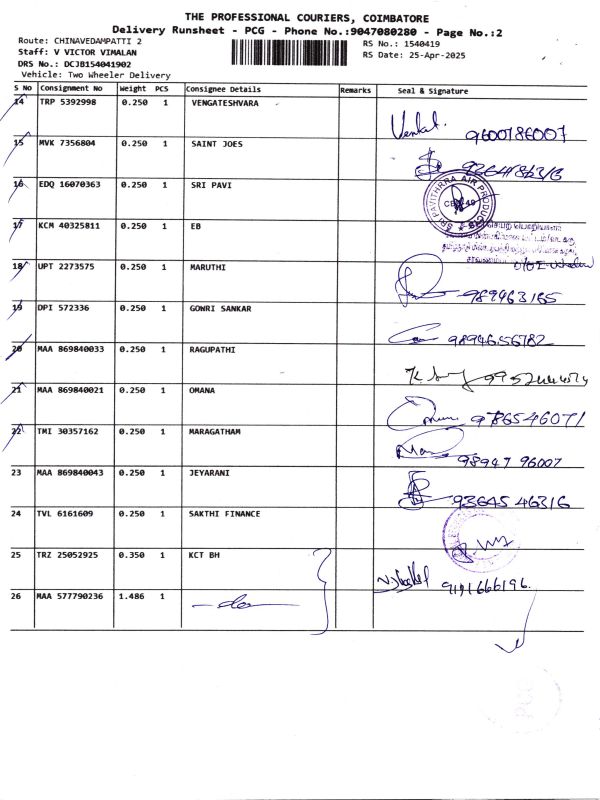 THE PROFESSIONAL COURIERS, COIMBATORE
Delivery Runsheet - PCG - Phone No.:9047080280 - Page No.:2
Route: CHINAVEDAMPATTI 2
RS No.: 1540419
Staff: V VICTOR VIMALAN
RS Date: 25-Apr-2025
DRS No.: DCJB154041902
Vehicle: Two Wheeler Delivery
S No Consignment No Weight PCS Consignee Details Remarks Seal & Signature
14 TRP 5392998 0.250 1 VENGATESHVARA
Venkat. 9600786007
15 MVK 7356804 0.250 1 SAINT JOES
16 EDQ 16070363 0.250 1 SRI PAVI
SRI PAVITHRRA AIR PRODUCTS
17 KCM 40325811 0.250 1 EB
18 UPT 2273575 0.250 1 MARUTHI
989463165
19 DPI 572336 0.250 1 GOWRI SANKAR
9894656782
20 MAA 869840033 0.250 1 RAGUPATHI
21 MAA 869840021 0.250 1 OMANA
9786546071
22 TMI 30357162 0.250 1 MARAGATHAM
98947 96007
23 MAA 869840043 0.250 1 JEYARANI
93645 46316
24 TVL 6161609 0.250 1 SAKTHI FINANCE
25 TRZ 25052925 0.350 1 KCT BH
9191666196.
26 MAA 577790236 1.486 1 -do-